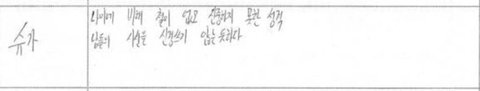 슈가
나이에 비해 철이 없고 신중하지 못한 성격
남들의 시선을 신경쓰지 않는 듯하다